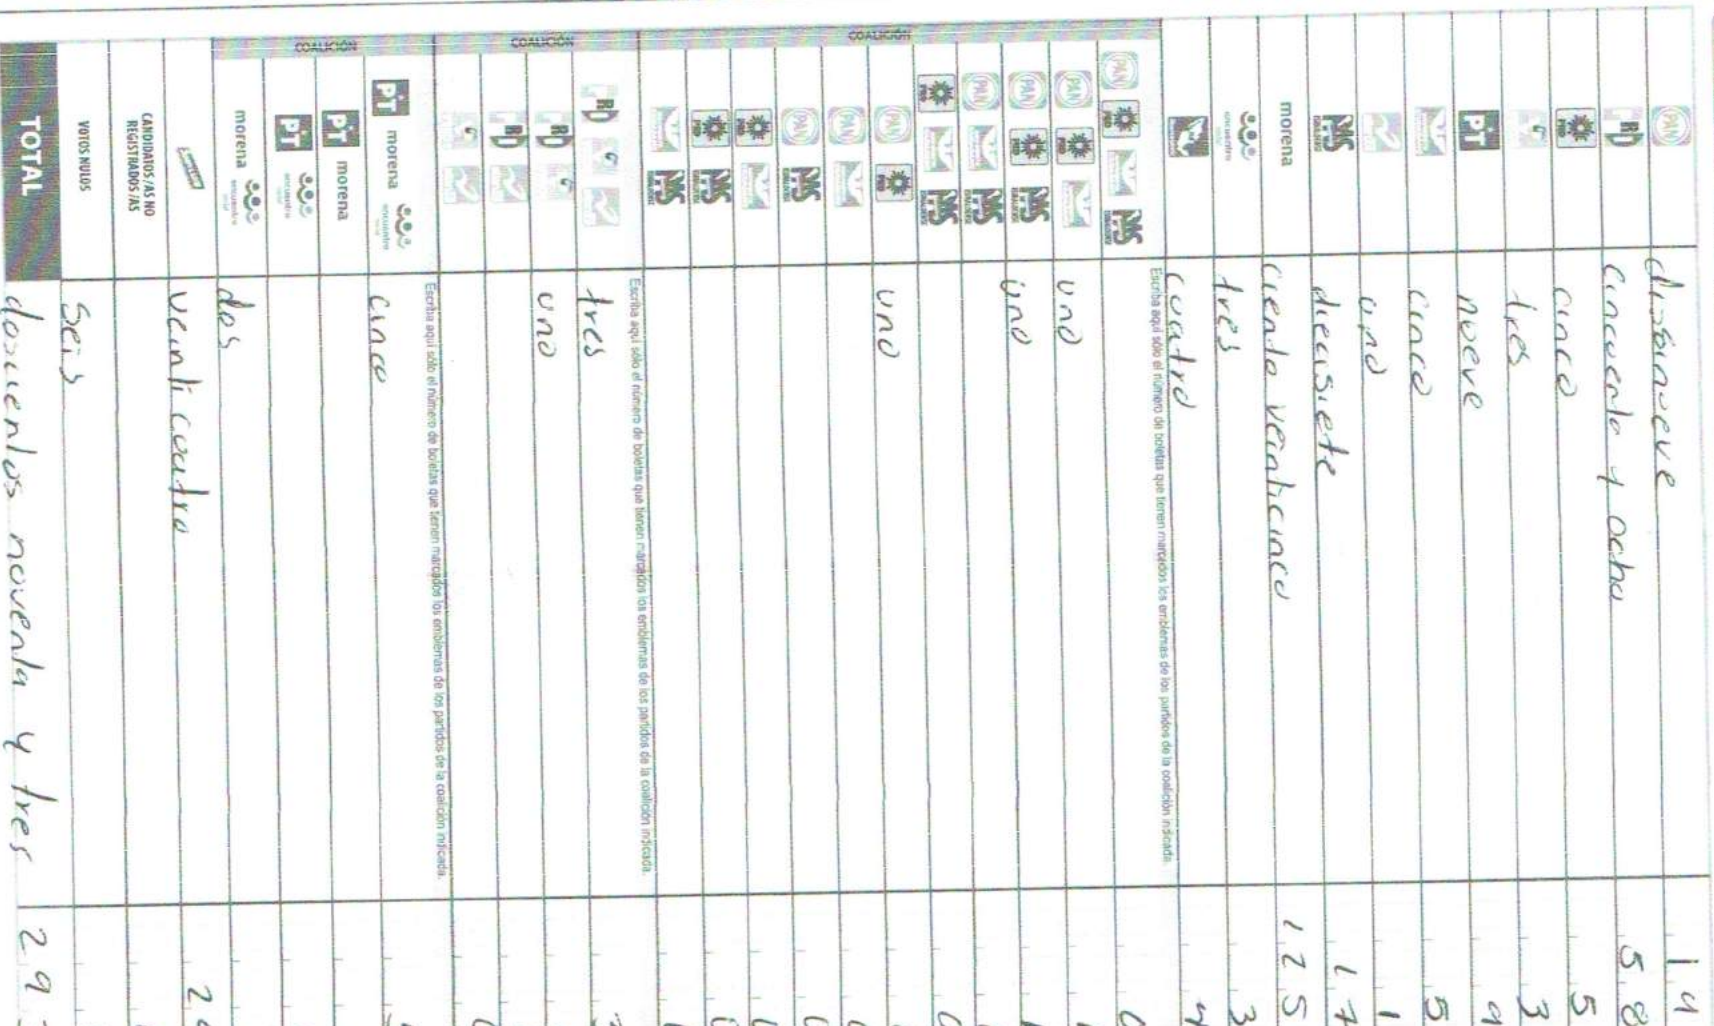 PAN diesinueve 19
PRD cincuenta y ocho 58
PSD cinco 5
tres 3
PT nueve 9
cinco 5
uno 1
PAS SINALOENSE diecisiete 17
morena ciento veinticinco 125
encuentro social tres 3
cuatro 4
COALICIÓN
Escriba aquí sólo el número de boletas que tienen marcados los emblemas de los partidos de la coalición indicada.
PAN PAS SINALOENSE 0
PAN uno
PAN PAS SINALOENSE uno
PAN PAS SINALOENSE
PAS SINALOENSE 0
PAN uno
PAN
PAN PAS SINALOENSE
PAS SINALOENSE
COALICIÓN
Escriba aquí sólo el número de boletas que tienen marcados los emblemas de los partidos de la coalición indicada.
RD tres 3
RD uno
RD
COALICIÓN
Escriba aquí sólo el número de boletas que tienen marcados los emblemas de los partidos de la coalición indicada.
PT morena encuentro social cinco
PT morena
PT encuentro social
morena encuentro social dos
veinticuatro 24
CANDIDATOS/AS NO REGISTRADOS/AS
VOTOS NULOS Seis
TOTAL doscientos noventa y tres 293